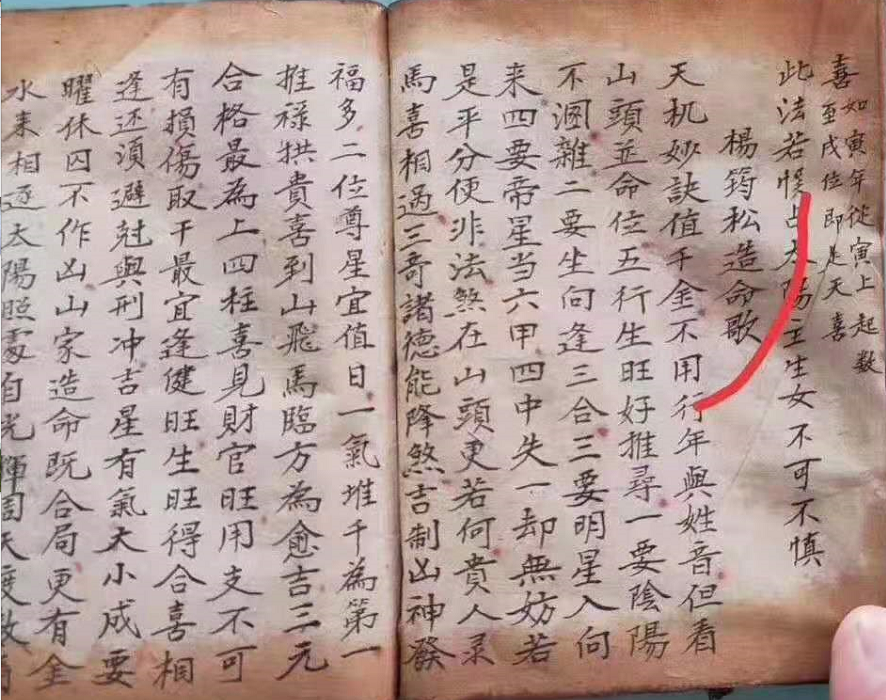 喜如寅年從寅上起数
至戌位即是天喜
此法若悮占太陽主生女不可不慎
楊筠松造命歌
天机妙訣值千金不用行年與姓音但看
山頭並命位五行生旺好推尋一要陰陽
不溷雜二要坐向逢三合三要明星入向
来四要帝星当六甲四中失一却無妨若
是平分便非法煞在山頭更若何貴人录
馬喜相逢三奇諸德能降煞吉制凶神發
福多二位尊星宜值日一氣堆干為第一
推祿拱貴喜到山飛馬臨方為愈吉三元
合格最為上四柱喜見財官旺用支不可
有損傷取干最宜逢健旺生旺得合喜相
逢还須避尅與刑冲吉星有氣大小成要
曜休囚不作凶山家造命既合局更有金
水来相逐太陽照處自光輝周天度数